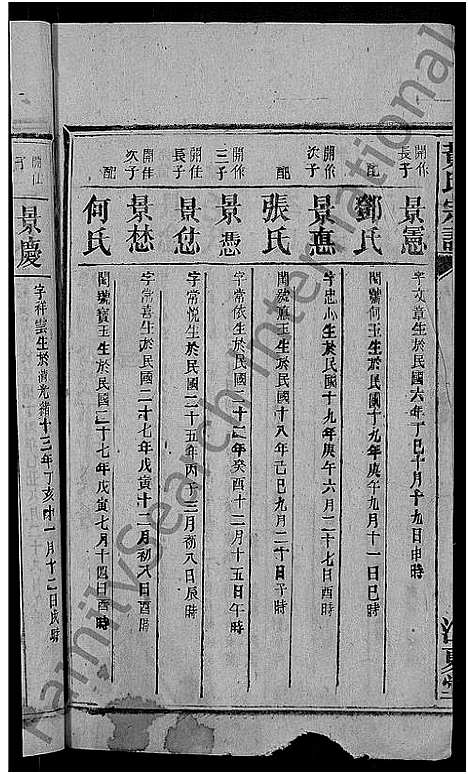 黃氏宗譜
江夏堂
開作長子 景憲 字文章生於民國六年丁巳十月十九日申時
配 鄧氏 閨號何玉生於民國十九年庚午九月十一日巳時
開作次子 景惪 字忠心生於民國十九年庚午六月二十七日酉時
配 張氏 閨號惠玉生於民國十八年己巳九月二十日子時
開作三子 景憑 字常依生於民國二十二年癸酉十二月十五日午時
開仕長子 景 字常悅生於民國二十五年丙子三月初八日辰時
開仕次子 景 字常喜生於民國二十七年戊寅十二月初八日酉時
配 何氏 閨號寶玉生於民國二十七年戊寅七月十四日酉時
開仕 子 景慶 字祥雲生於清光緒十三年丁亥 一月十二日戌時
FamilySearch International